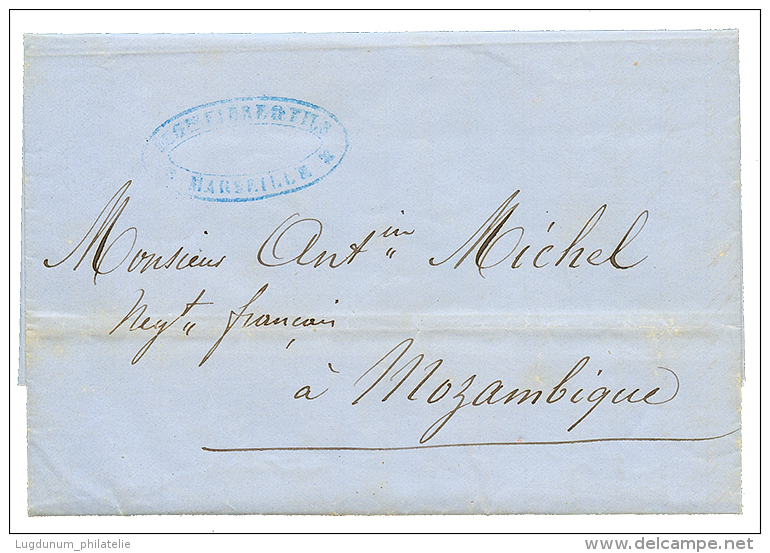 FILS
* MARSEILLE *
Monsieur Ant^in Michel
Neg^t français
à Mozambique
Lugdunum_philatelie
delcampe.net